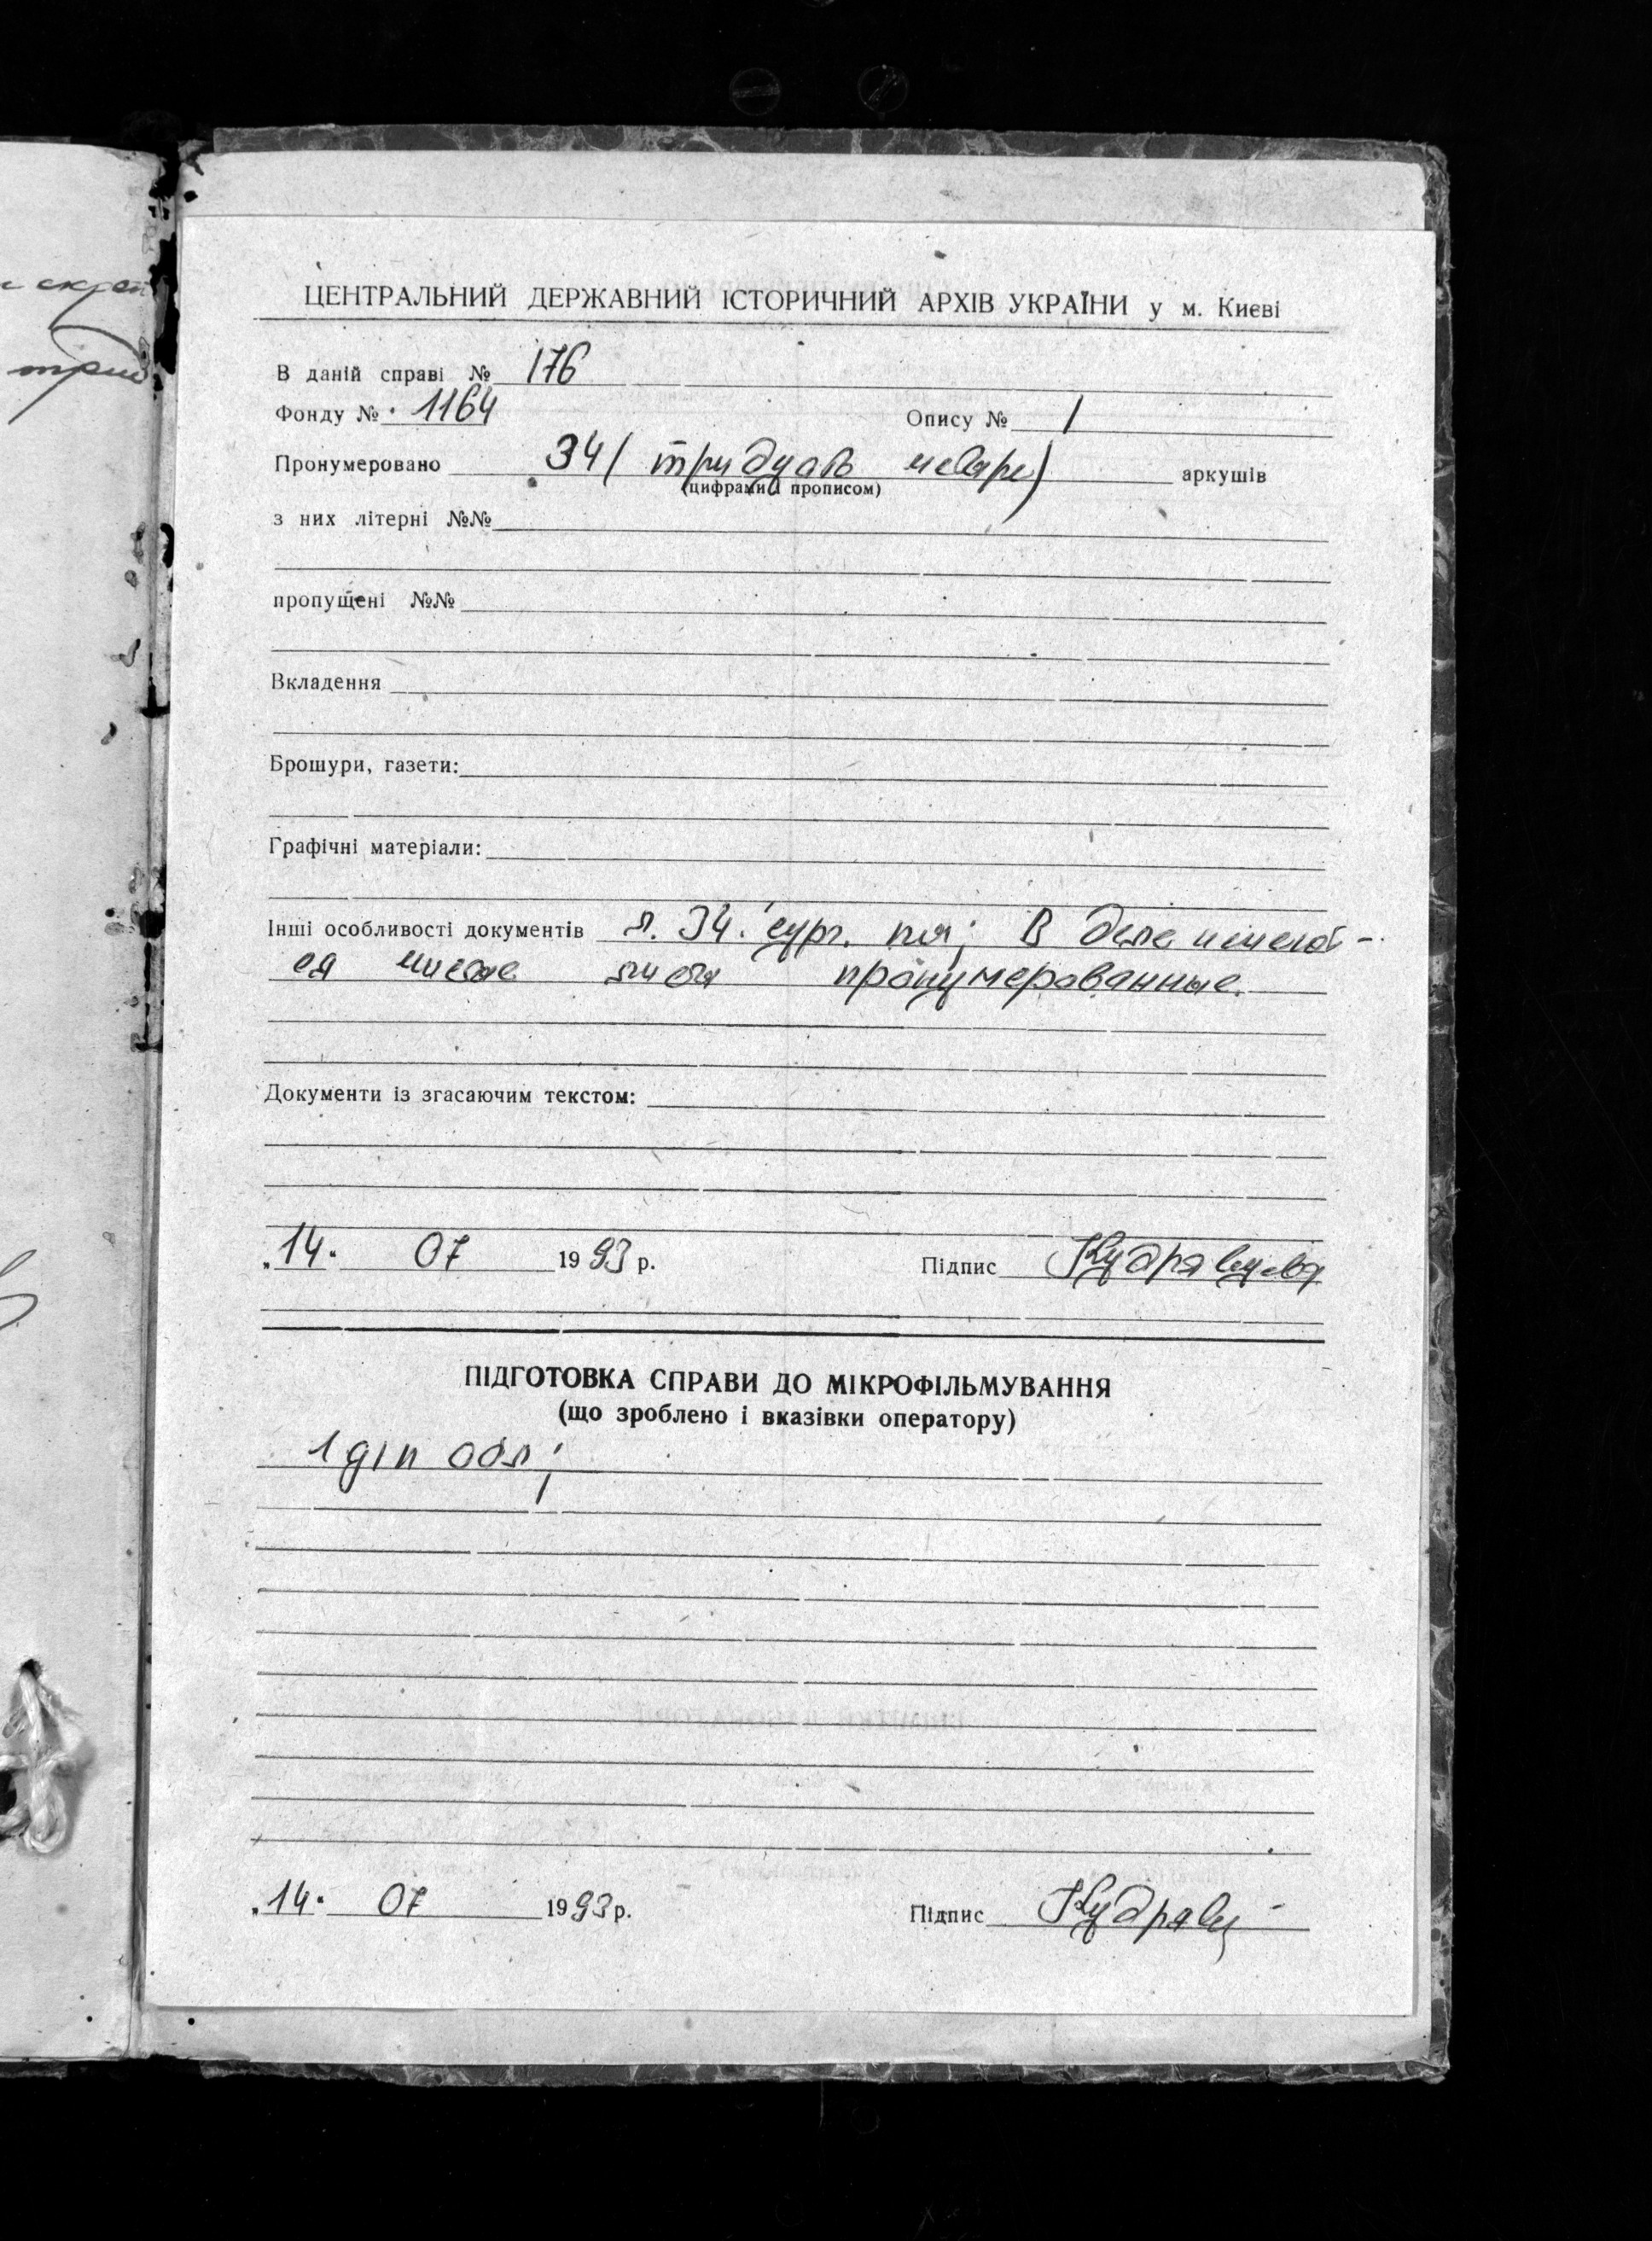 ЦЕНТРАЛЬНИЙ ДЕРЖАВНИЙ ІСТОРИЧНИЙ АРХІВ УКРАЇНИ у м. Києві
В даній справі № 176
Фонду № 1164 Опису № 1
Пронумеровано 34 (тридцать четыре) аркушів
(цифрами і прописом)
з них літерні №№
пропущені №№
Вкладення
Брошури, газети:
Графічні матеріали:
Інші особливості документів л. 34. сург. печ; В деле имеют-
ся чистые листы пронумерованные.
Документи із згасаючим текстом:
"14" 07 1993 р. Підпис Кудрявцева
ПІДГОТОВКА СПРАВИ ДО МІКРОФІЛЬМУВАННЯ
(що зроблено і вказівки оператору)
1 д/п обл;
"14" 07 1993 р. Підпис Кудрявц